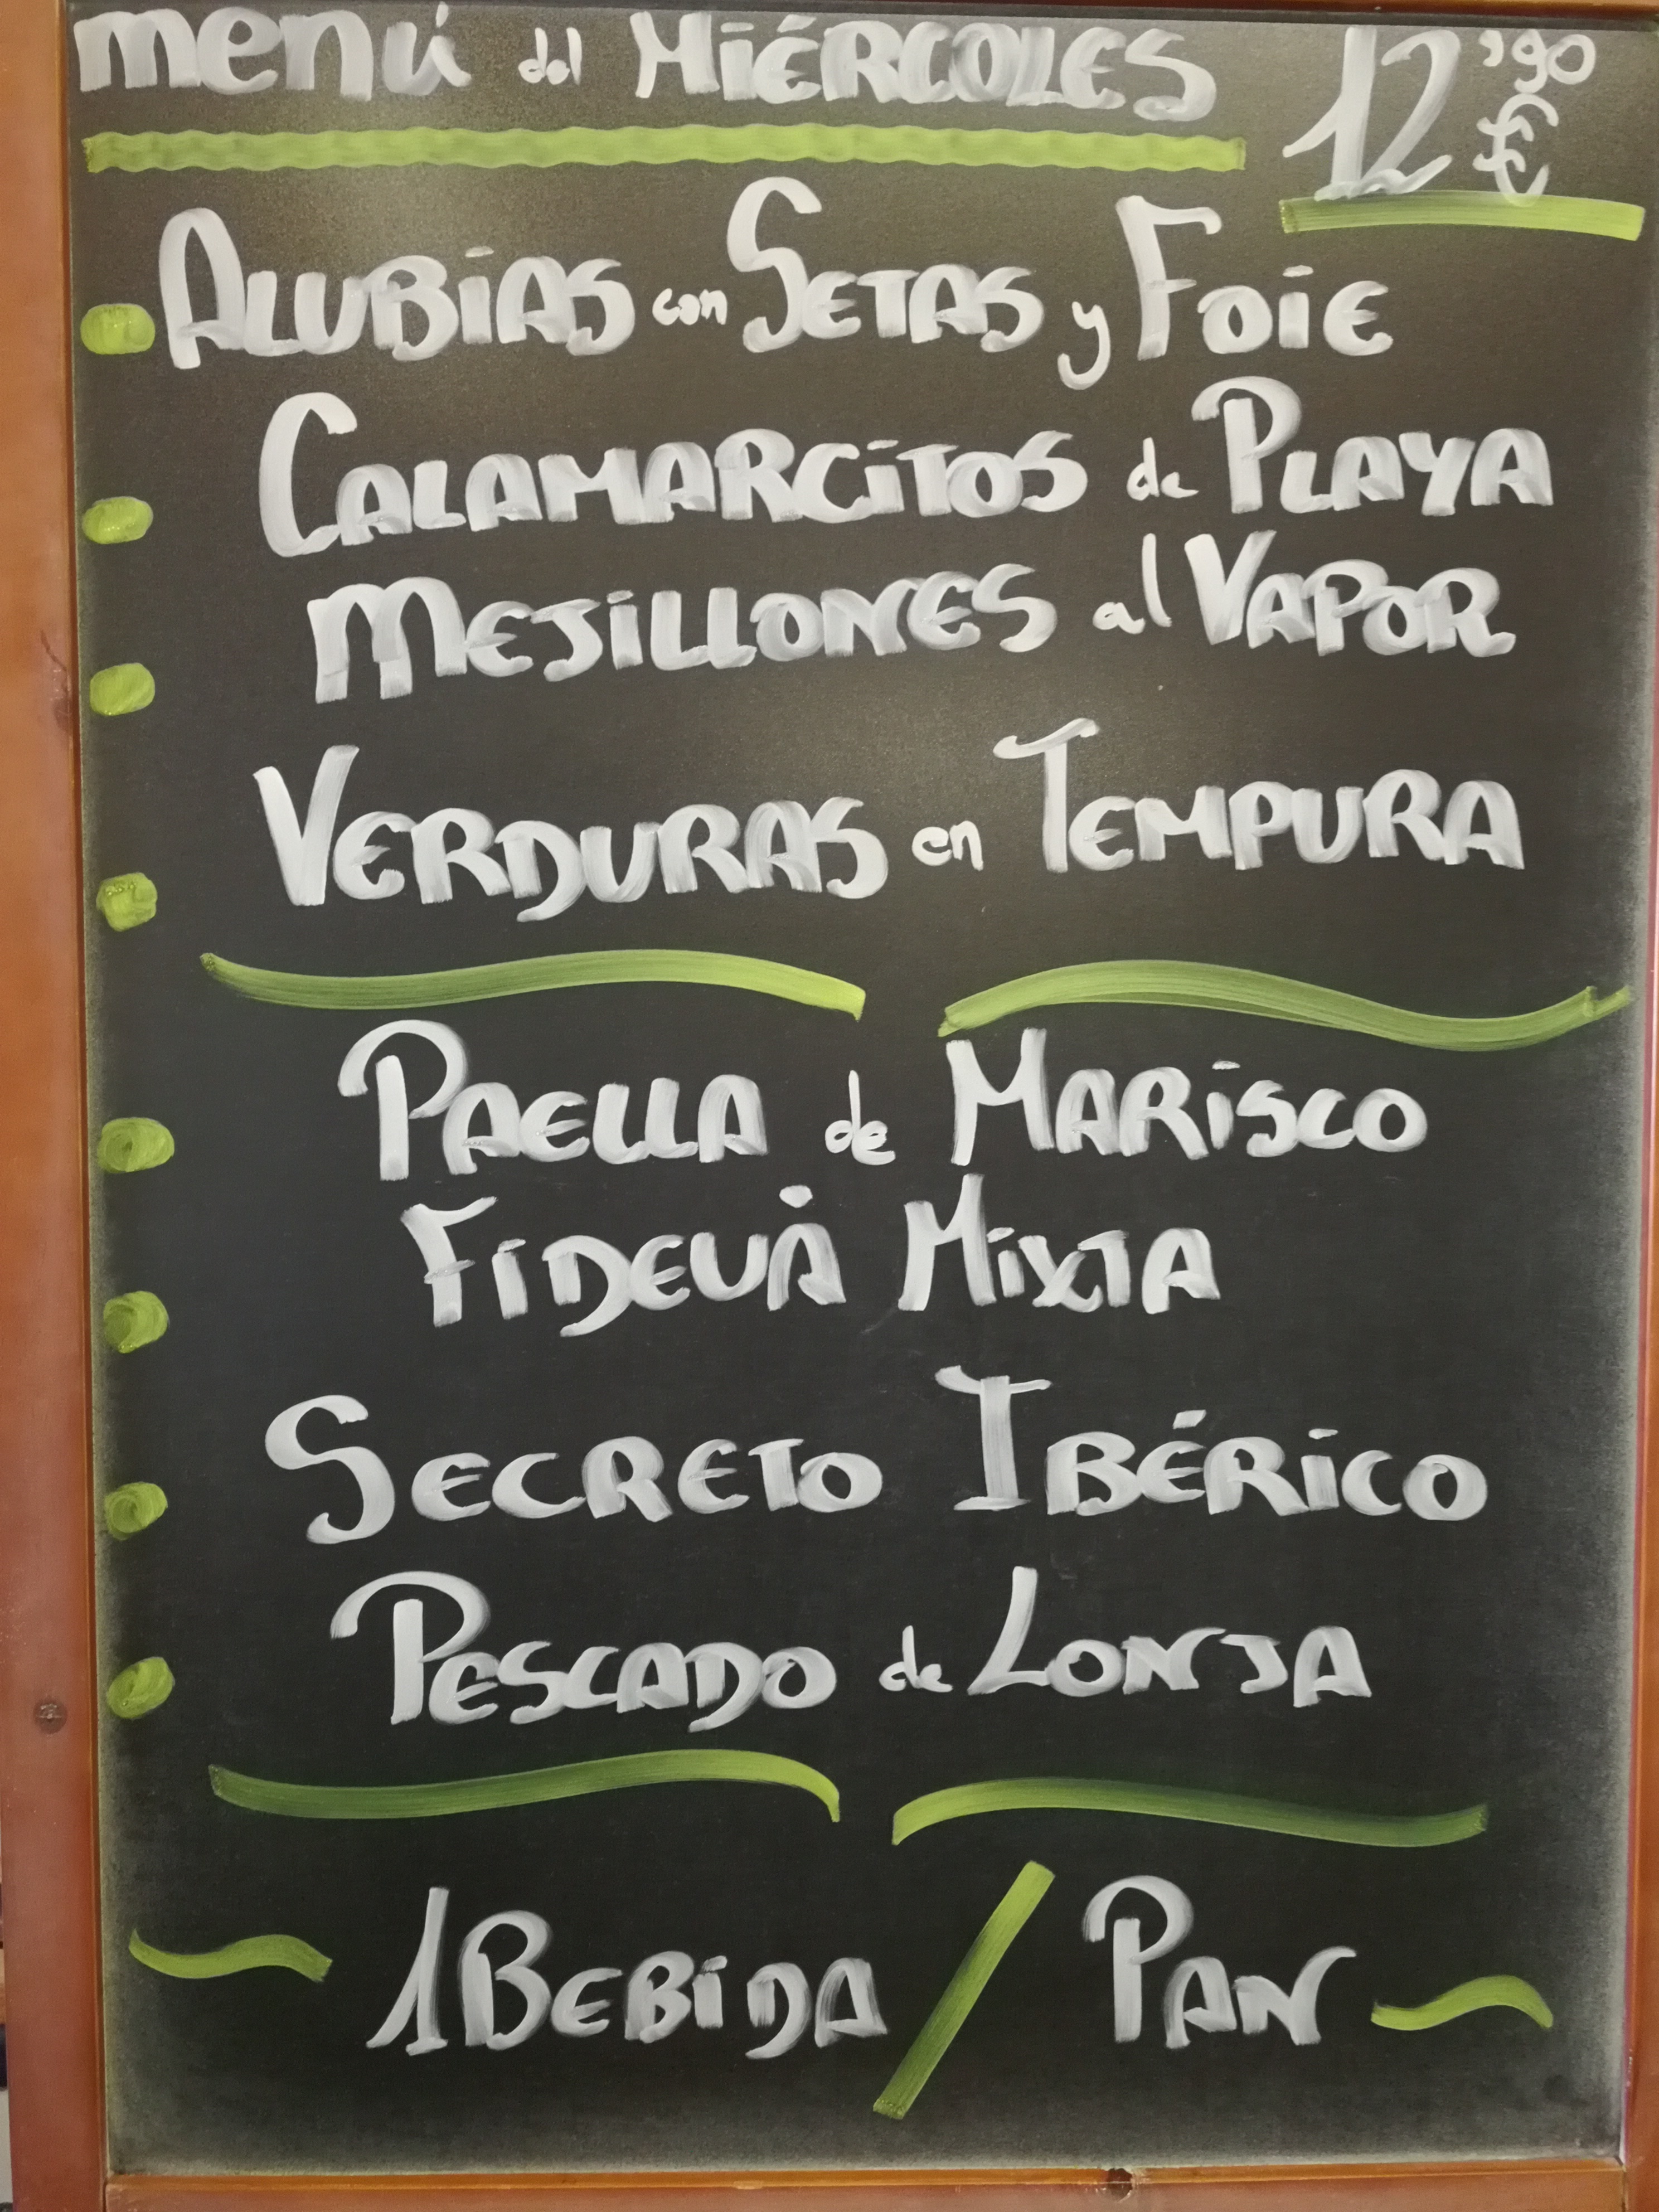 menú del MiÉRCOLES 12'90 €
ALUBiAS con SETAS y FOiE
CALAMARCiTOS de PLAYA
MEJiLLONES al VAPOR
VERDURAS en TEMPURA
PAELLA de MARiSCO
FiDEUÀ MiXTA
SECRETO IBÉRiCO
PESCADO de LONJA
1 BEBiDA / PAN